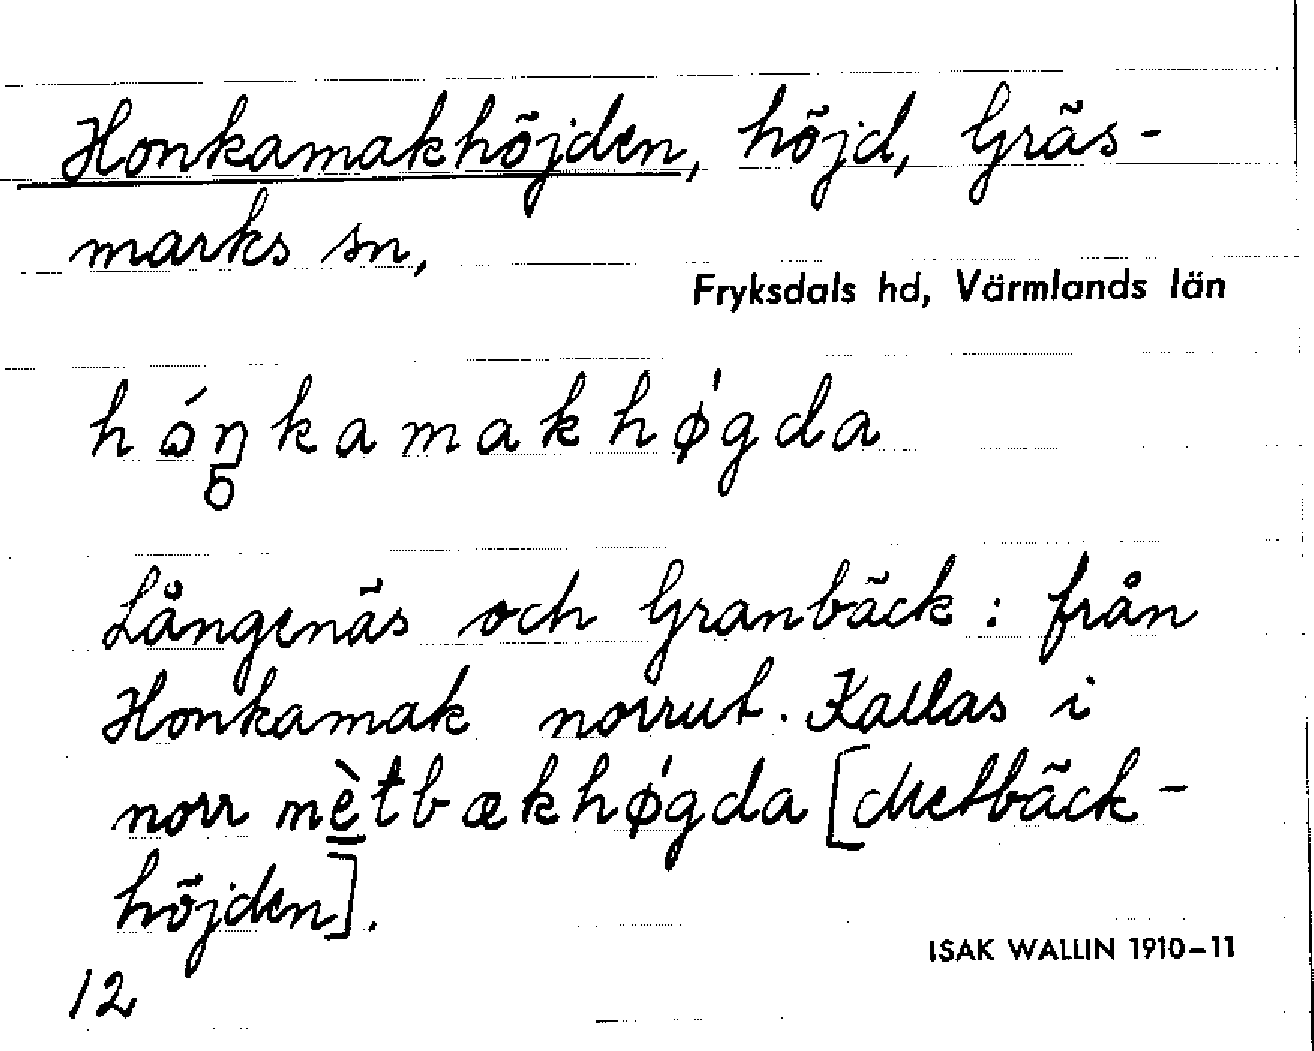 Honkamakhöjden, höjd, Gräs-
marks sn,
Fryksdals hd, Värmlands län
hɔ́ŋkamakhǿgda
Långenäs och Granbäck: från
Honkamak norrut. Kallas i
norr mè̳tbækhǿgda [Metbäck-
höjden].
ISAK WALLIN 1910–11
12